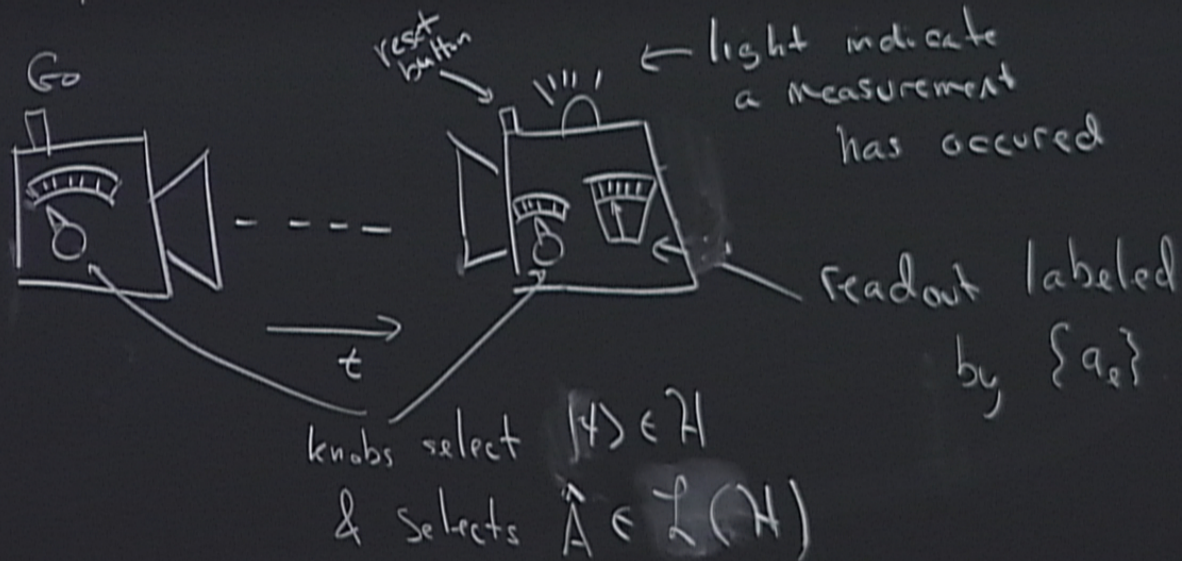 Go
reset
button
← light indicate
a measurement
has occured
readout labeled
by {aₑ}
t
knobs select |ψ> ∈ H
& selects Â ∈ L(H)